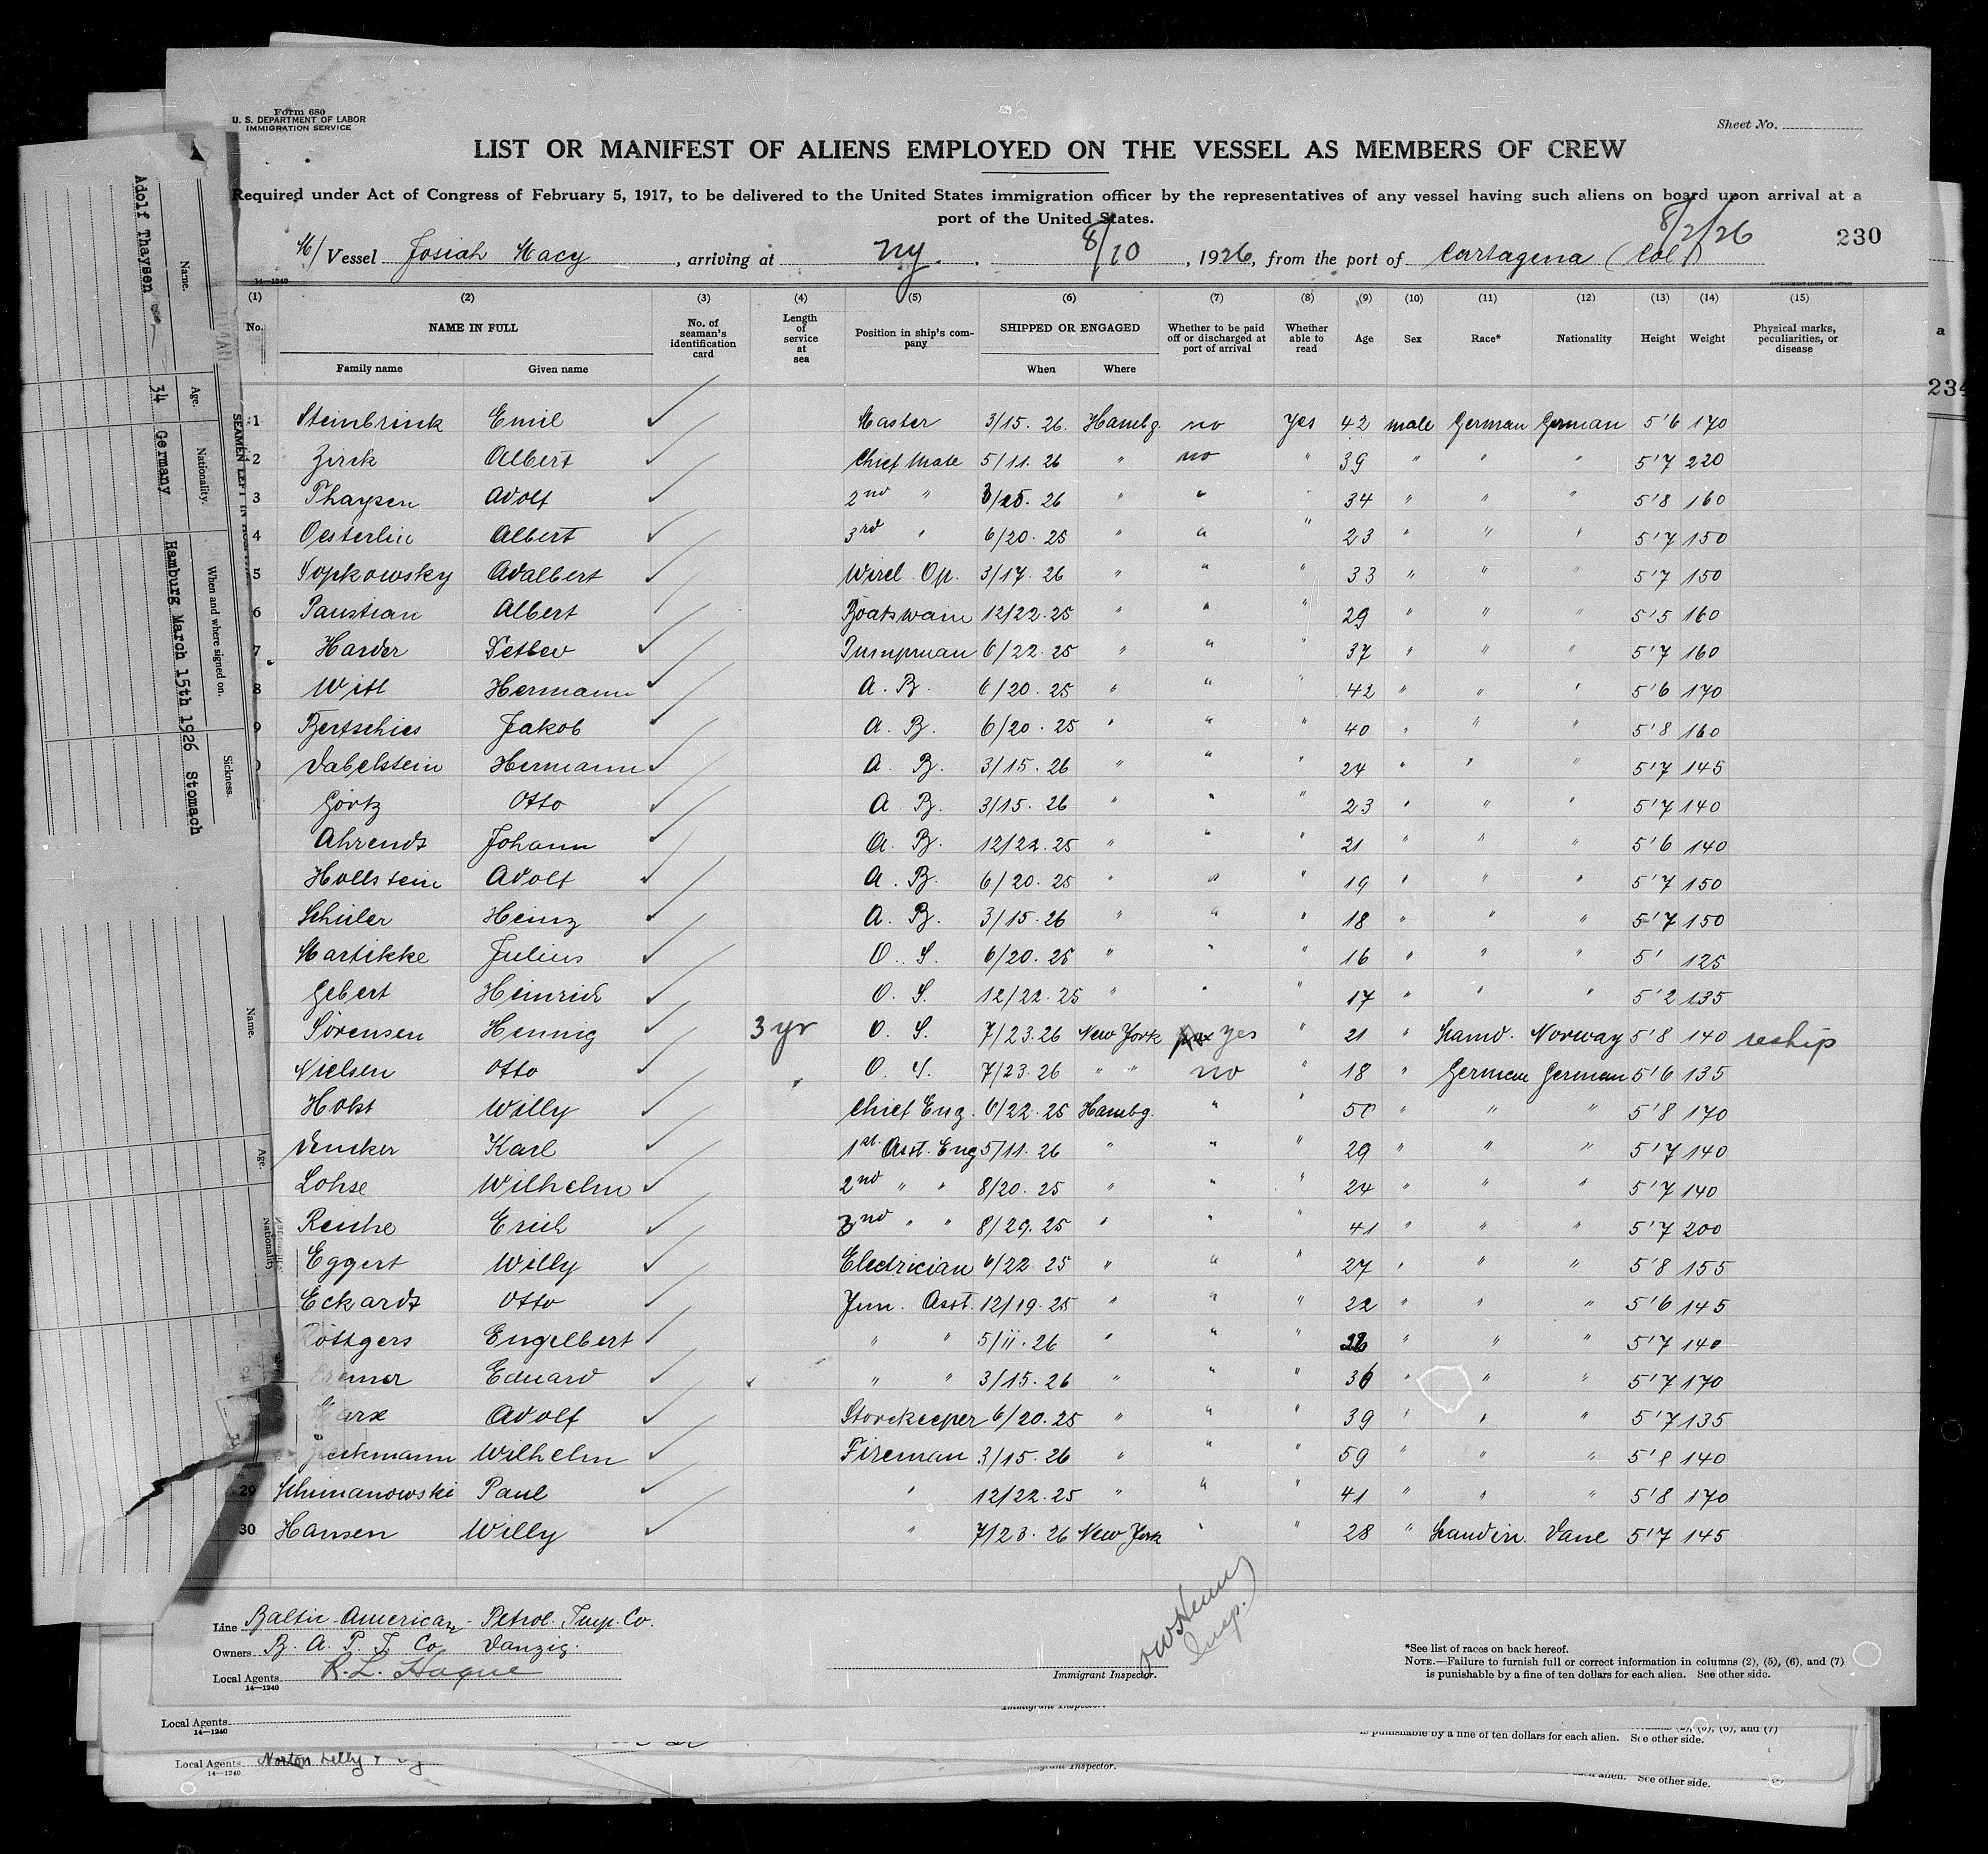 Form 680
U. S. DEPARTMENT OF LABOR
IMMIGRATION SERVICE
Sheet No.
LIST OR MANIFEST OF ALIENS EMPLOYED ON THE VESSEL AS MEMBERS OF CREW
Required under Act of Congress of February 5, 1917, to be delivered to the United States immigration officer by the representatives of any vessel having such aliens on board upon arrival at a
port of the United States.
8/2/26
230
M/ Vessel Josiah Macy, arriving at NY. 8/10, 1926, from the port of Cartagena (Col)
14—1240
(1) (2) (3) (4) (5) (6) (7) (8) (9) (10) (11) (12) (13) (14) (15)
No. NAME IN FULL Family name Given name No. of seaman's identification card Length of service at sea Position in ship's company SHIPPED OR ENGAGED When Where Whether to be paid off or discharged at port of arrival Whether able to read Age Sex Race* Nationality Height Weight Physical marks, peculiarities, or disease
1 Steinbrink Emil Master 3/15. 26. Hambg. no yes 42 male German German 5'6 170
2 Zirck Albert Chief Mate 5/11. 26 " no " 39 " " " 5'7 220
3 Thaysen Adolf 2nd " 3/15. 26 " " " 34 " " " 5'8 160
4 Oesterlin Albert 3rd " 6/20. 25 " " " 23 " " " 5'7 150
5 Sopkowsky Adalbert Wirel. Op. 3/17. 26 " " " 33 " " " 5'7 150
6 Paustian Albert Boatswain 12/22. 25 " " " 29 " " " 5'5 160
7 Harder Detlev Pumpman 6/22. 25 " " " 37 " " " 5'7 160
8 Witt Hermann A. B. 6/20. 25 " " " 42 " " " 5'6 170
9 Bertschies Jakob A. B. 6/20. 25 " " " 40 " " " 5'8 160
Dabelstein Hermann A. B. 3/15. 26 " " " 24 " " " 5'7 145
Görtz Otto A. B. 3/15. 26 " " " 23 " " " 5'7 140
Ahrendt Johann A. B. 12/22. 25 " " " 21 " " " 5'6 140
Hollstein Adolf A. B. 6/20. 25 " " " 19 " " " 5'7 150
Schüler Heinz A. B. 3/15. 26 " " " 18 " " " 5'7 150
Martikke Julius O. S. 6/20. 25 " " " 16 " " " 5' 125
Gebert Heinrich O. S. 12/22. 25 " " " 17 " " " 5'2 135
Sörensen Hennig 3 yr O. S. 7/23. 26 New York yes " 21 " Scand. Norway 5'8 140 reship
Nielsen Otto O. S. 7/23. 26 " " no " 18 " German German 5'6 135
Holst Willy Chief Eng. 6/22. 25 Hambg. " " 50 " " " 5'8 170
Karl 1st. Asst. Eng 5/11. 26 " " " 29 " " " 5'7 140
Lohse Wilhelm 2nd " " 8/20. 25 " " " 24 " " " 5'7 140
Reiche Erich 3nd " " 8/29. 25 " " " 41 " " " 5'7 200
Eggert Willy Electrician 6/22. 25 " " " 27 " " " 5'8 155
Eckardt Otto Jun. Asst. 12/19. 25 " " " 22 " " " 5'6 145
Röttgers Engelbert " " 5/11. 26 " " " 26 " " " 5'7 140
Eduard " " 3/15. 26 " " " 36 " " " 5'7 170
Marx Adolf Storekeeper 6/20. 25 " " " 39 " " " 5'7 135
Wilhelm Fireman 3/15. 26 " " " 59 " " " 5'8 140
29 Schimanowski Paul " 12/22. 25 " " " 41 " " " 5'8 170
30 Hansen Willy " 7/23. 26 New York " " 28 " Scandin. Dane 5'7 145
Line Baltic-American Petrol. Imp. Co.
Owners B. A. P. I. Co Danzig.
Local Agents R. L. Hague
14—1240
Immigrant Inspector.
Insp.
*See list of races on back hereof.
NOTE.—Failure to furnish full or correct information in columns (2), (5), (6), and (7)
is punishable by a fine of ten dollars for each alien. See other side.
Name. Age. Nationality. When and where signed on. Sickness.
Adolf Thaysen 34 Germany Hamburg March 15th 1926 Stomach
SEAMEN LEFT IN
Name. Age. Nationality
234
Local Agents
14—1240
Immigrant Inspector.
is punishable by a fine of ten dollars for each alien. See other side.
Local Agents Norton Lilly &
14—1240
Inspector.
each alien. See other side.